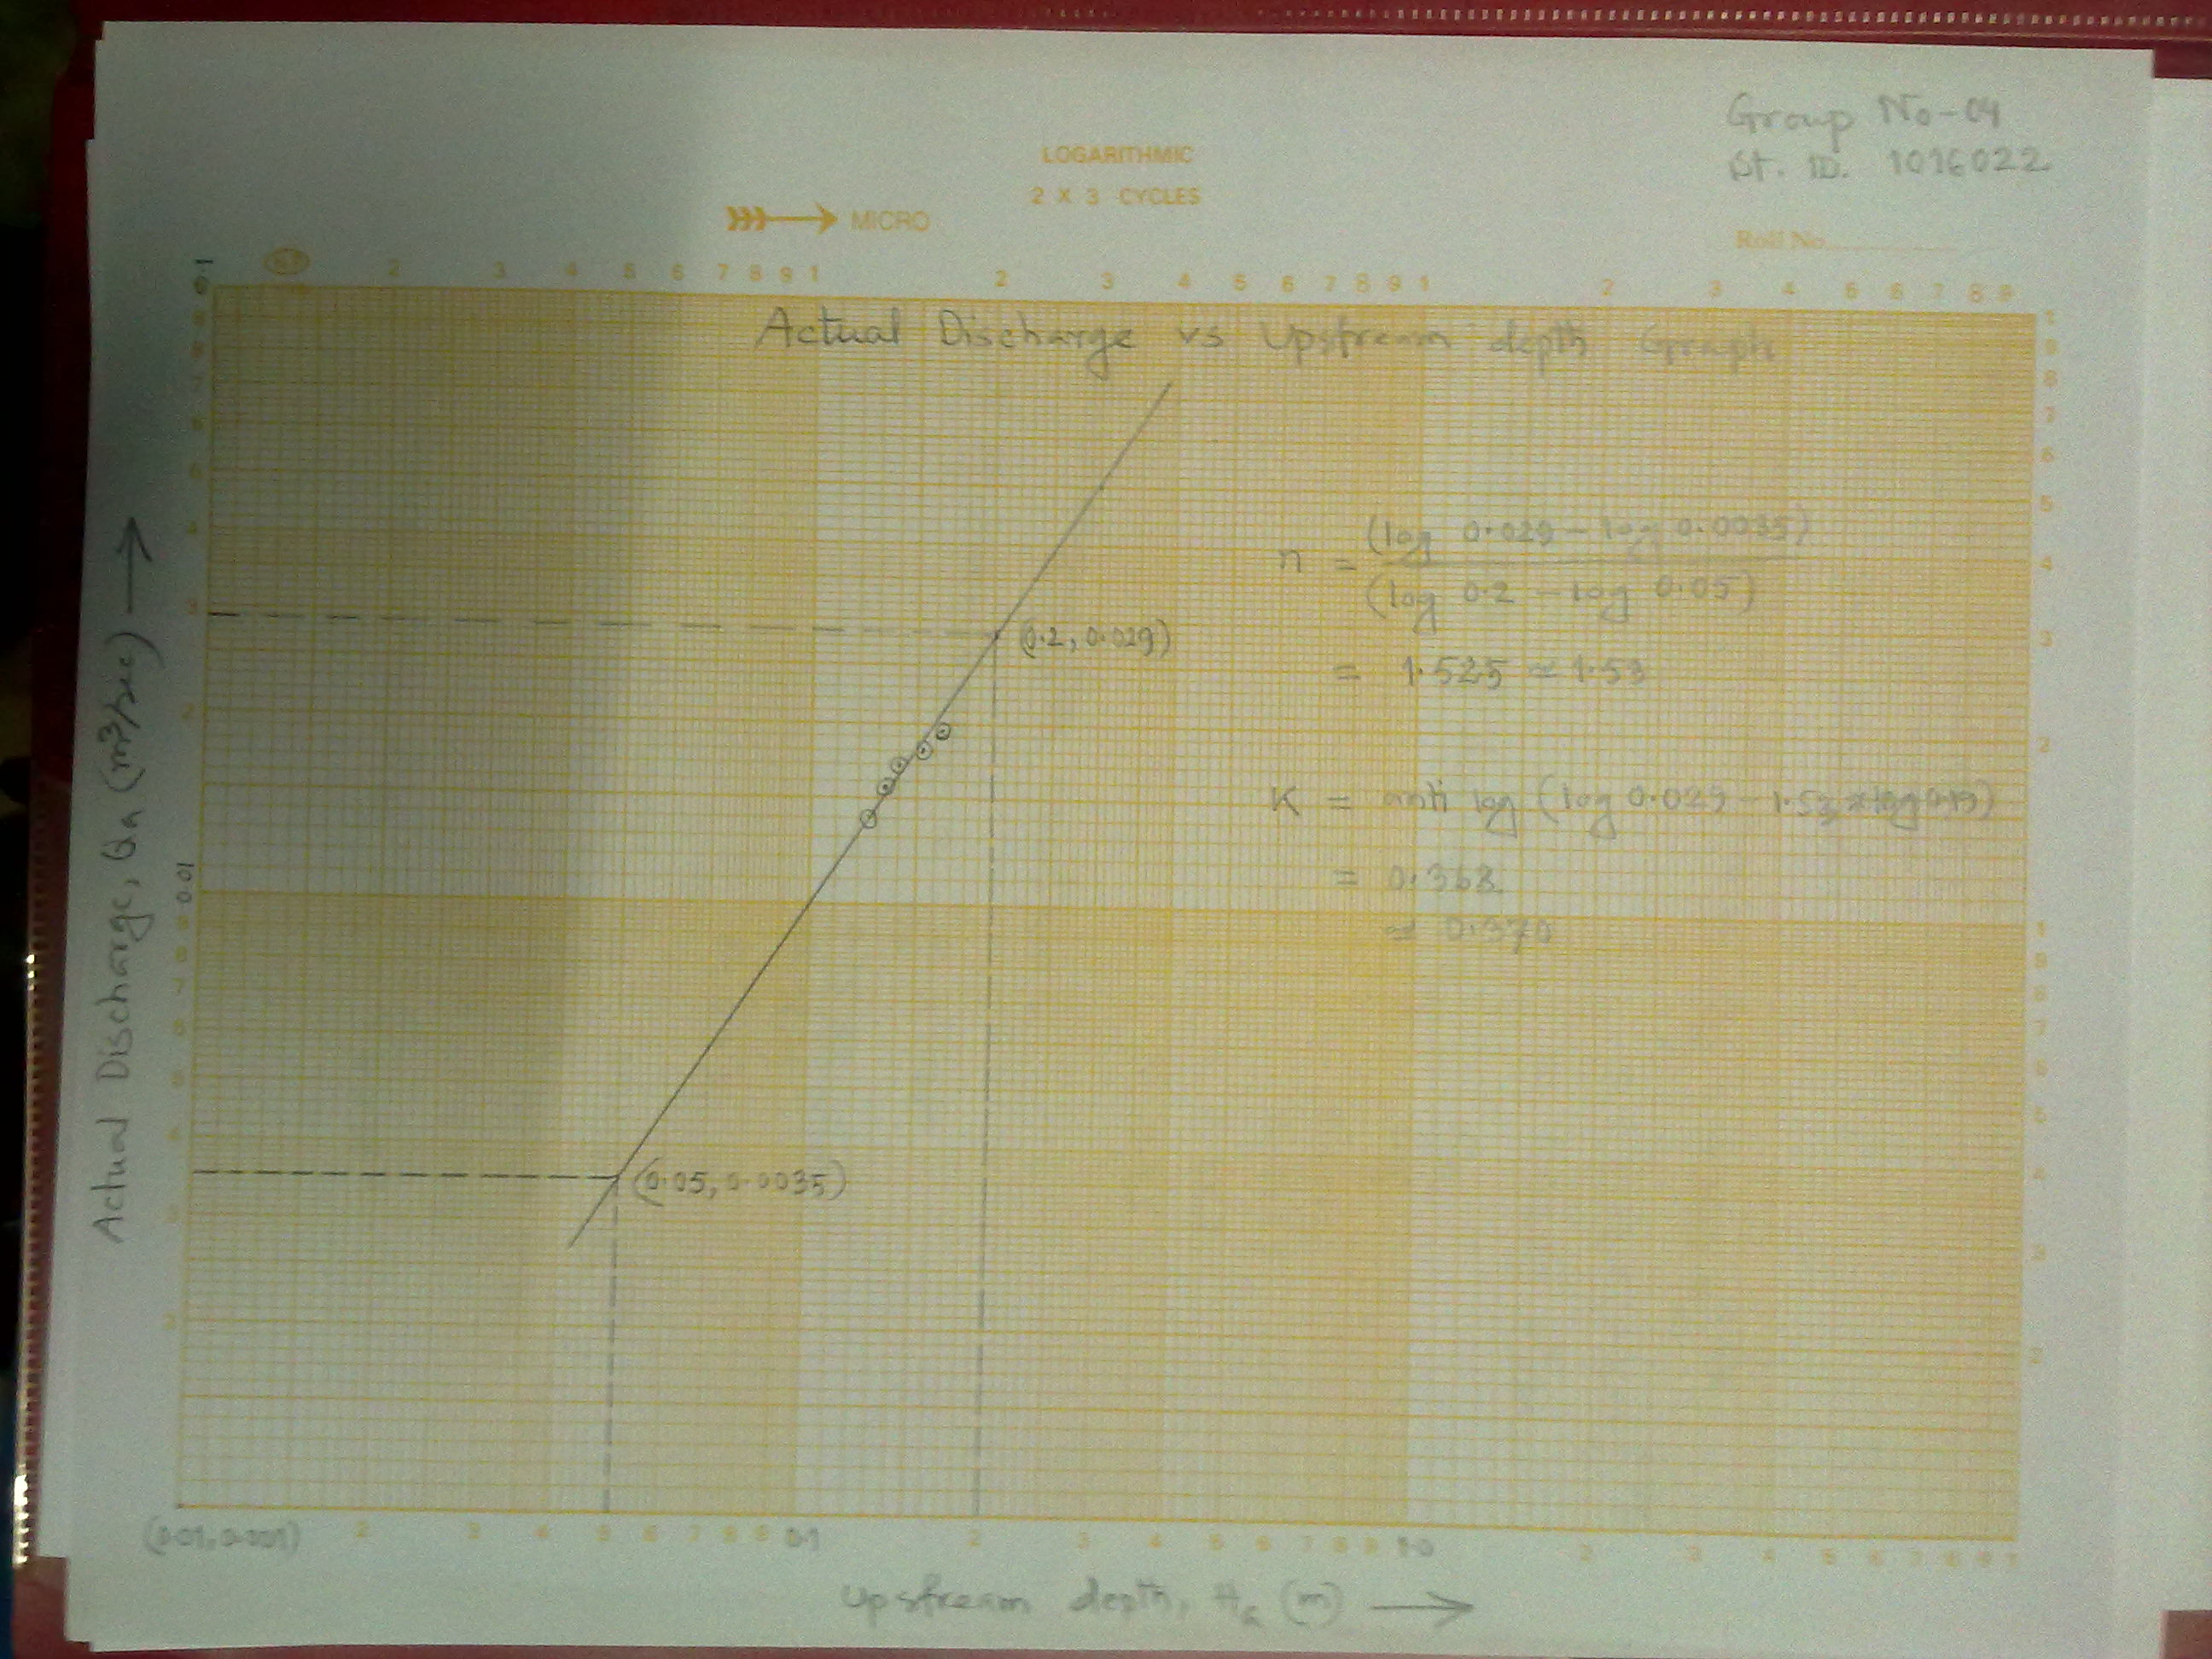 Group No-04
St. ID. 1016022
LOGARITHMIC
2 X 3 CYCLES
MICRO
Roll No
0.1
2 3 4 5 6 7 8 9 1 2 3 4 5 6 7 8 9 1 2 3 4 5 6 7 8 9
Actual Discharge vs Upstream depth Graph
n = (log 0.029 - log 0.0035)
(log 0.2 - log 0.05)
= 1.525 ≈ 1.53
(0.2, 0.029)
K = anti log (log 0.029 - 1.53
= 0.368
≈ 0.370
0.01
(0.05, 0.0035)
Actual Discharge, Qa (m³/sec)
(0.01, 0.001) 2 3 4 5 6 7 8 9 0.1 2 3 4 5 6 7 8 9 1.0 2 3 4 5 6 7 8 9 1
Upstream depth, Ha (m)